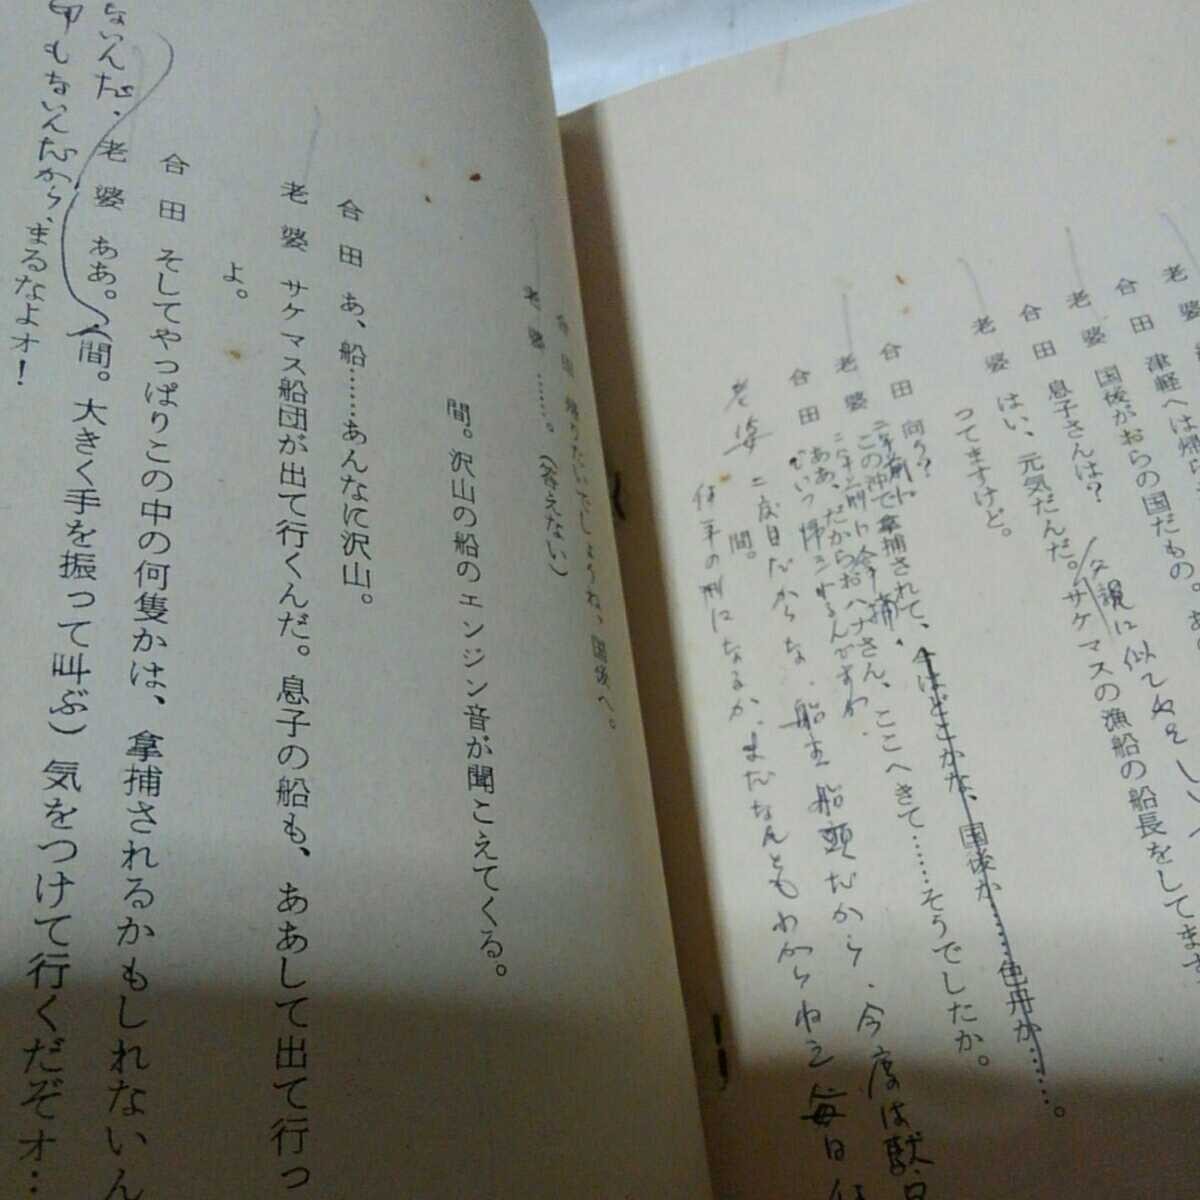 老婆
合田 津軽へは帰
老婆 国後がおらの国だもの。あ
合田 息子さんは?
父親に似てねえ
老婆 はい、元気だんだ。サケマスの漁船の船長をしてます
ってますけど。
合田 向う?
老婆 この沖で拿捕されて、今はどこかな、国後か……色丹か……。
合田 ああ、だからおハナさん、ここへきて……そうでしたか。
老婆 二度目だからな、船主船頭だから、今度は駄目
間。
何年の刑になるか、まだなんともわからねえ毎日
合田 帰りたいでしょうね、国後へ。
老婆 ……。(答えない)
間。沢山の船のエンジン音が聞こえてくる。
合田 あ、船……あんなに沢山。
老婆 サケマス船団が出て行くんだ。息子の船も、ああして出て行っ
よ。
合田 そしてやっぱりこの中の何隻かは、拿捕されるかもしれないん
老婆 ああ。(間。大きく手を振って叫ぶ)気をつけて行くだぞォ…
ないんだ、
もないんだから、まるなよォ!